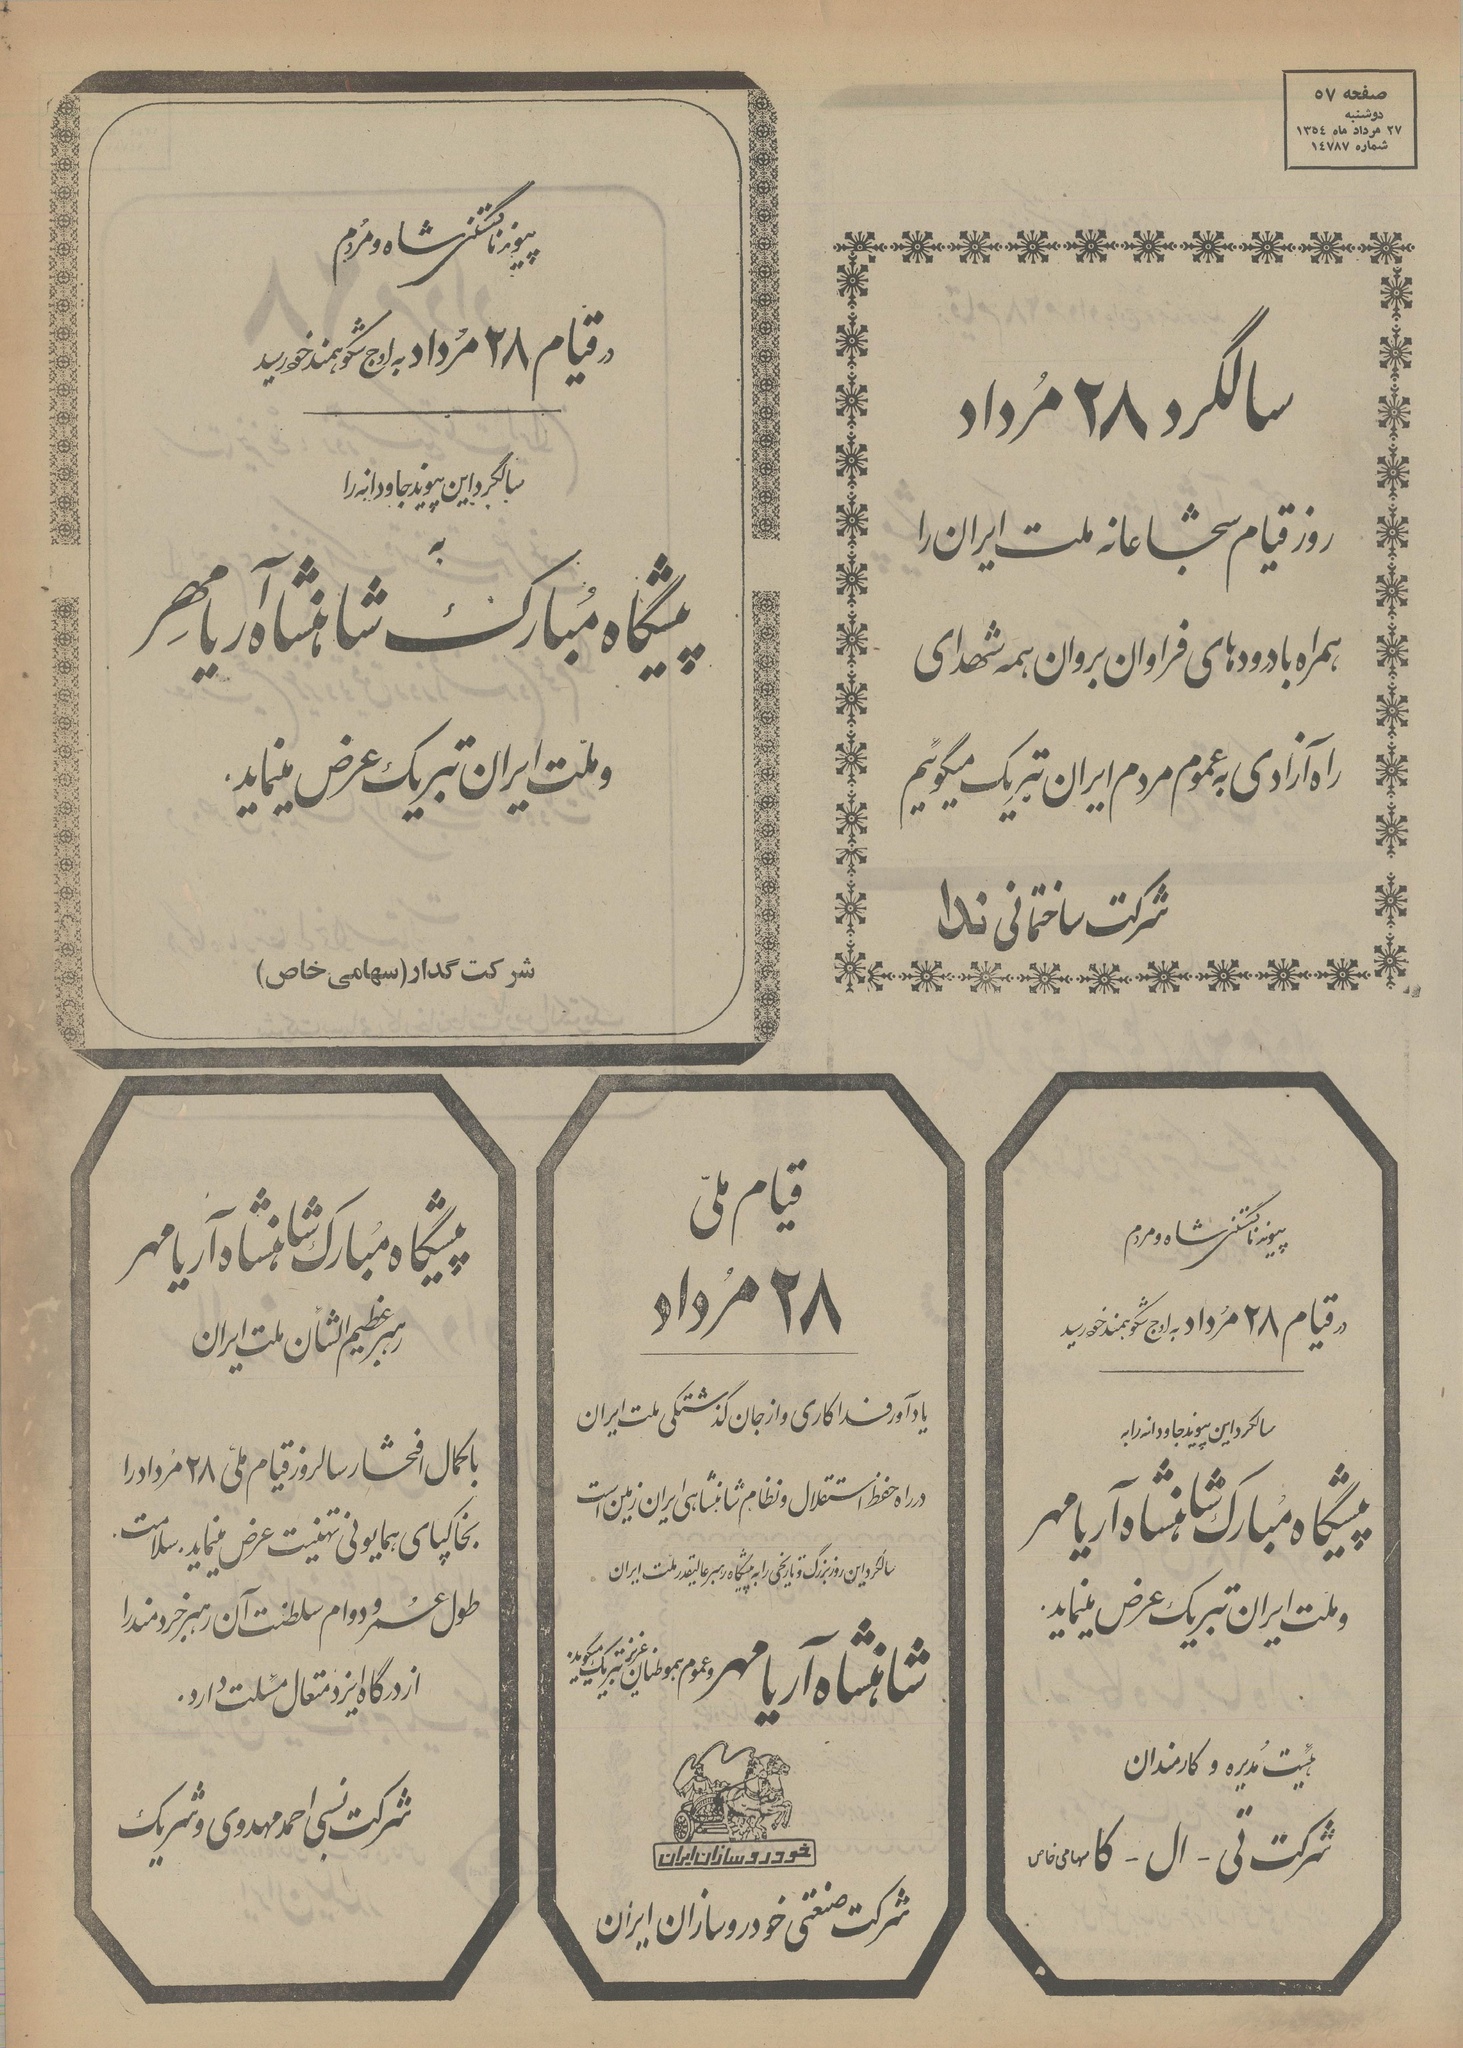 صفحه ٥٧
دوشنبه
٢٧ مرداد ماه ١٣٥٤
شماره ١٤٧٨٧
سالگرد ۲۸ مُرداد
روز قیام شجاعانه ملت ایران را
همراه با درودهای فراوان بروان همه شهدای
راه آزادی به عموم مردم ایران تبریک میگوئیم
شرکت ساختمانی ندا
پیوند ناگسستنی شاه و مُردم
در قیام ۲۸ مُرداد به اوج شکوهمند خود رسید
سالگرد این پیوند جاودانه را
به
پیشگاه مُبارک شاهنشاه آریامهِر
و ملّت ایران تبریک عرض مینماید.
شرکت گدار (سهامی خاص)
پیوند ناگسستنی شاه و مردم
در قیام ۲۸ مُرداد به اوج شکوهمند خود رسید
سالگرد این پیوند جاودانه را به
پیشگاه مُبارک شاهنشاه آریامهر
و ملّت ایران تبریک عرض مینماید.
هیئت مُدیره و کارمندان
شرکت تی - ال - کا سهامی خاص
قیام ملّی
۲۸ مُرداد
یادآور فداکاری و از جان گذشتگی ملت ایران
در راه حفظ استقلال و نظام شاهنشاهی ایران زمین است
سالگرد این روز بزرگ و تاریخی را به پیشگاه رهبر عالیقدر ملت ایران
شاهنشاه آریامهر و عموم هموطنان عزیز تبریک میگوید.
خودروسازان ایران
شرکت صنعتی خودروسازان ایران
پیشگاه مُبارک شاهنشاه آریامهر
رهبر عظیم الشأن ملت ایران
با کمال افتخار سالروز قیام ملی ۲۸ مُرداد را
بخاکپای همایونی تهنیت عرض مینماید. سلامت.
طول عُمر و دوام سلطنت آن رهبر خردمند را
از درگاه ایزد متعال مسئلت دارد.
شرکت نسبی احمد مهدوی و شریک